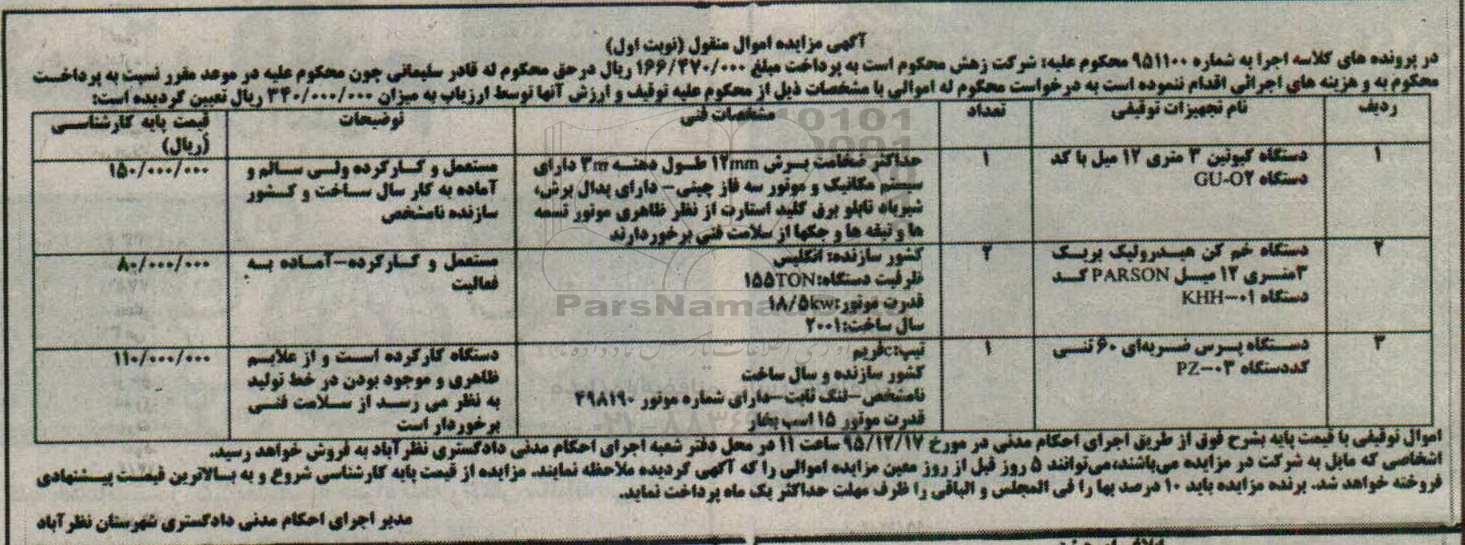 آگهی مزایده اموال منقول (نوبت اول)
در پرونده های کلاسه اجرا به شماره ۹۵۱۱۰۰ محکوم علیه: شرکت زهش محکوم است به پرداخت مبلغ ۱۶۶/۴۷۰/۰۰۰ ریال درحق محکوم له قادر سلیمانی چون محکوم علیه در موعد مقرر نسبت به پرداخت
محکوم به و هزینه های اجرائی اقدام ننموده است به درخواست محکوم له اموالی با مشخصات ذیل از محکوم علیه توقیف و ارزش آنها توسط ارزیاب به میزان ۳۴۰/۰۰۰/۰۰۰ ریال تعیین گردیده است:
ردیف نام تجهیزات توقیفی تعداد مشخصات فنی توضیحات قیمت پایه کارشناسی
(ریال)
۱ دستگاه گیوتین ۳ متری ۱۲ میل با کد ۱ حداکثر ضخامت برش ۱۲mm طول دهنه ۳m دارای مستعمل و کارکرده ولی سالم و ۱۵۰/۰۰۰/۰۰۰
دستگاه GU-O۲ سیستم مکانیک و موتور سه فاز چینی- دارای پدال برش، آماده به کار سال ساخت و کشور
شیرباد تابلو برق کلید استارت از نظر ظاهری موتور تسمه سازنده نامشخص
ها و تیغه ها و جکها از سلامت فنی برخوردارند
۲ دستگاه خم کن هیدرولیک بریک ۲ کشور سازنده: انگلیس مستعمل و کارکرده-آماده به ۸۰/۰۰۰/۰۰۰
۳متری ۱۲ میل PARSON کد ظرفیت دستگاه: ۱۵۵TON فعالیت
دستگاه KHH-۰۱ قدرت موتور: ۱۸/۵kw
سال ساخت: ۲۰۰۱
۳ دستگاه پرس ضربه‌ای ۶۰ تنی ۱ تیپ:cفریم دستگاه کارکرده است و از علایم ۱۱۰/۰۰۰/۰۰۰
کددستگاه PZ-۰۳ کشور سازنده و سال ساخت ظاهری و موجود بودن در خط تولید
نامشخص-لنگ ثابت-دارای شماره موتور ۴۹۸۱۹۰ به نظر می رسد از سلامت فنی
قدرت موتور ۱۵ اسب بخار برخوردار است
اموال توقیفی با قیمت پایه بشرح فوق از طریق اجرای احکام مدنی در مورخ ۹۵/۱۲/۱۷ ساعت ۱۱ در محل دفتر شعبه اجرای احکام مدنی دادگستری نظرآباد به فروش خواهد رسید.
اشخاصی که مایل به شرکت در مزایده می‌باشند،می‌توانند ۵ روز قبل از روز معین مزایده اموالی را که آگهی گردیده ملاحظه نمایند. مزایده از قیمت پایه کارشناسی شروع و به بالاترین قیمت پیشنهادی
فروخته خواهد شد. برنده مزایده باید ۱۰ درصد بها را فی المجلس و الباقی را ظرف مهلت حداکثر یک ماه پرداخت نماید.
مدیر اجرای احکام مدنی دادگستری شهرستان نظرآباد